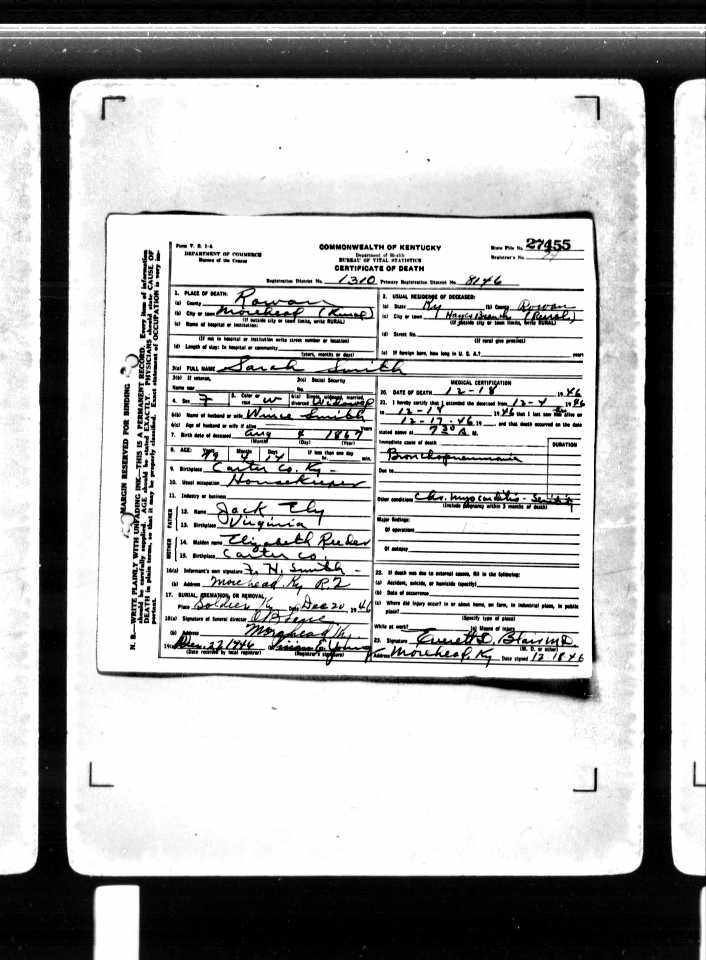 Form V. S. 1-A
DEPARTMENT OF COMMERCE
Bureau of the Census
COMMONWEALTH OF KENTUCKY
Department of Health
BUREAU OF VITAL STATISTICS
CERTIFICATE OF DEATH
State File No. 27455
Registrar's No.
Registration District No. 1310 Primary Registration District No. 8146
N. B.—WRITE PLAINLY WITH UNFADING INK—THIS IS A PERMANENT RECORD. Every item of information
should be carefully supplied. AGE should be stated EXACTLY. PHYSICIANS should state CAUSE OF
DEATH in plain terms, so that it may be properly classified. Exact statement of OCCUPATION is very im-
portant.
MARGIN RESERVED FOR BINDING
1. PLACE OF DEATH:
(a) County Rowan
(b) City or town Morehead (Rural)
(If outside city or town limits, write RURAL)
(c) Name of hospital or institution:
(If not in hospital or institution write street number or location)
(d) Length of stay: In hospital or community
(years, months or days)
2. USUAL RESIDENCE OF DECEASED:
(a) State Ky (b) County Rowan
(c) City or town Hayes Branch (Rural)
(If outside city or town limits, write RURAL)
(d) Street No.
(If rural give precinct)
(e) If foreign born, how long in U. S. A.? years
3(a) FULL NAME Sarah Smith
3(b) If veteran, 3(c) Social Security
Name war No.
4. Sex F 5. Color or race W 6(a) Single, widowed, married, divorced Widowed
6(b) Name of husband or wife Smith
6(c) Age of husband or wife if alive Years
7. Birth date of deceased Aug 4 1867
(Month) (Day) (Year)
8. AGE: Years Months Days If less than one day
79 4 14 hr. min.
9. Birthplace Carter Co. Ky.
10. Usual occupation Housekeeper
11. Industry or business
FATHER
12. Name Jack Ely
13. Birthplace Virginia
MOTHER
14. Maiden name Elizabeth Reeder
15. Birthplace Carter Co.
16(a) Informant's own signature F. H. Smith
(b) Address Morehead, Ky R. 2
17. BURIAL, CREMATION, OR REMOVAL
Place Soldier Ky Date Dec 20, 1946
18(a) Signature of funeral director
(b) Address Morehead Ky.
19(a) Dec. 22 1946 (b) E. Young
(Date received by local registrar) (Registrar's signature)
MEDICAL CERTIFICATION
20. DATE OF DEATH 12-18 1946
21. I hereby certify that I attended the deceased from 12-4 1946
to 12-14 1946 that I last saw alive on
12-17-46 19 and that death occurred on the date
stated above at 7 30 A. M.
Immediate cause of death DURATION
Bronchopneumonia
Due to
Other conditions Chr. myocarditis - Senility
(Include pregnancy within 3 months of death)
Major findings:
Of operations
Of autopsy
22. If death was due to external causes, fill in the following:
(a) Accident, suicide, or homicide (specify)
(b) Date of occurrence
(c) Where did injury occur? In or about home, on farm, in industrial place, in public
place?
(Specify type of place)
While at work? (e) Means of injury
23. Signature Everett D. Blair M.D.
(M. D. or other)
Address Morehead, Ky Date signed 12 18 46